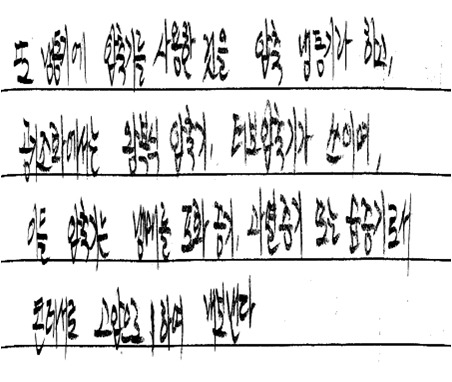 또 냉동기에 압축기를 사용한 것을 압축 냉동기라 하고,
왕복식 압축기, 터보압축기가 쓰이며,
이들 압축기는 냉매를 포화 증기, 과열증기 또는 습증기로서
고압으로 하여 내보낸다